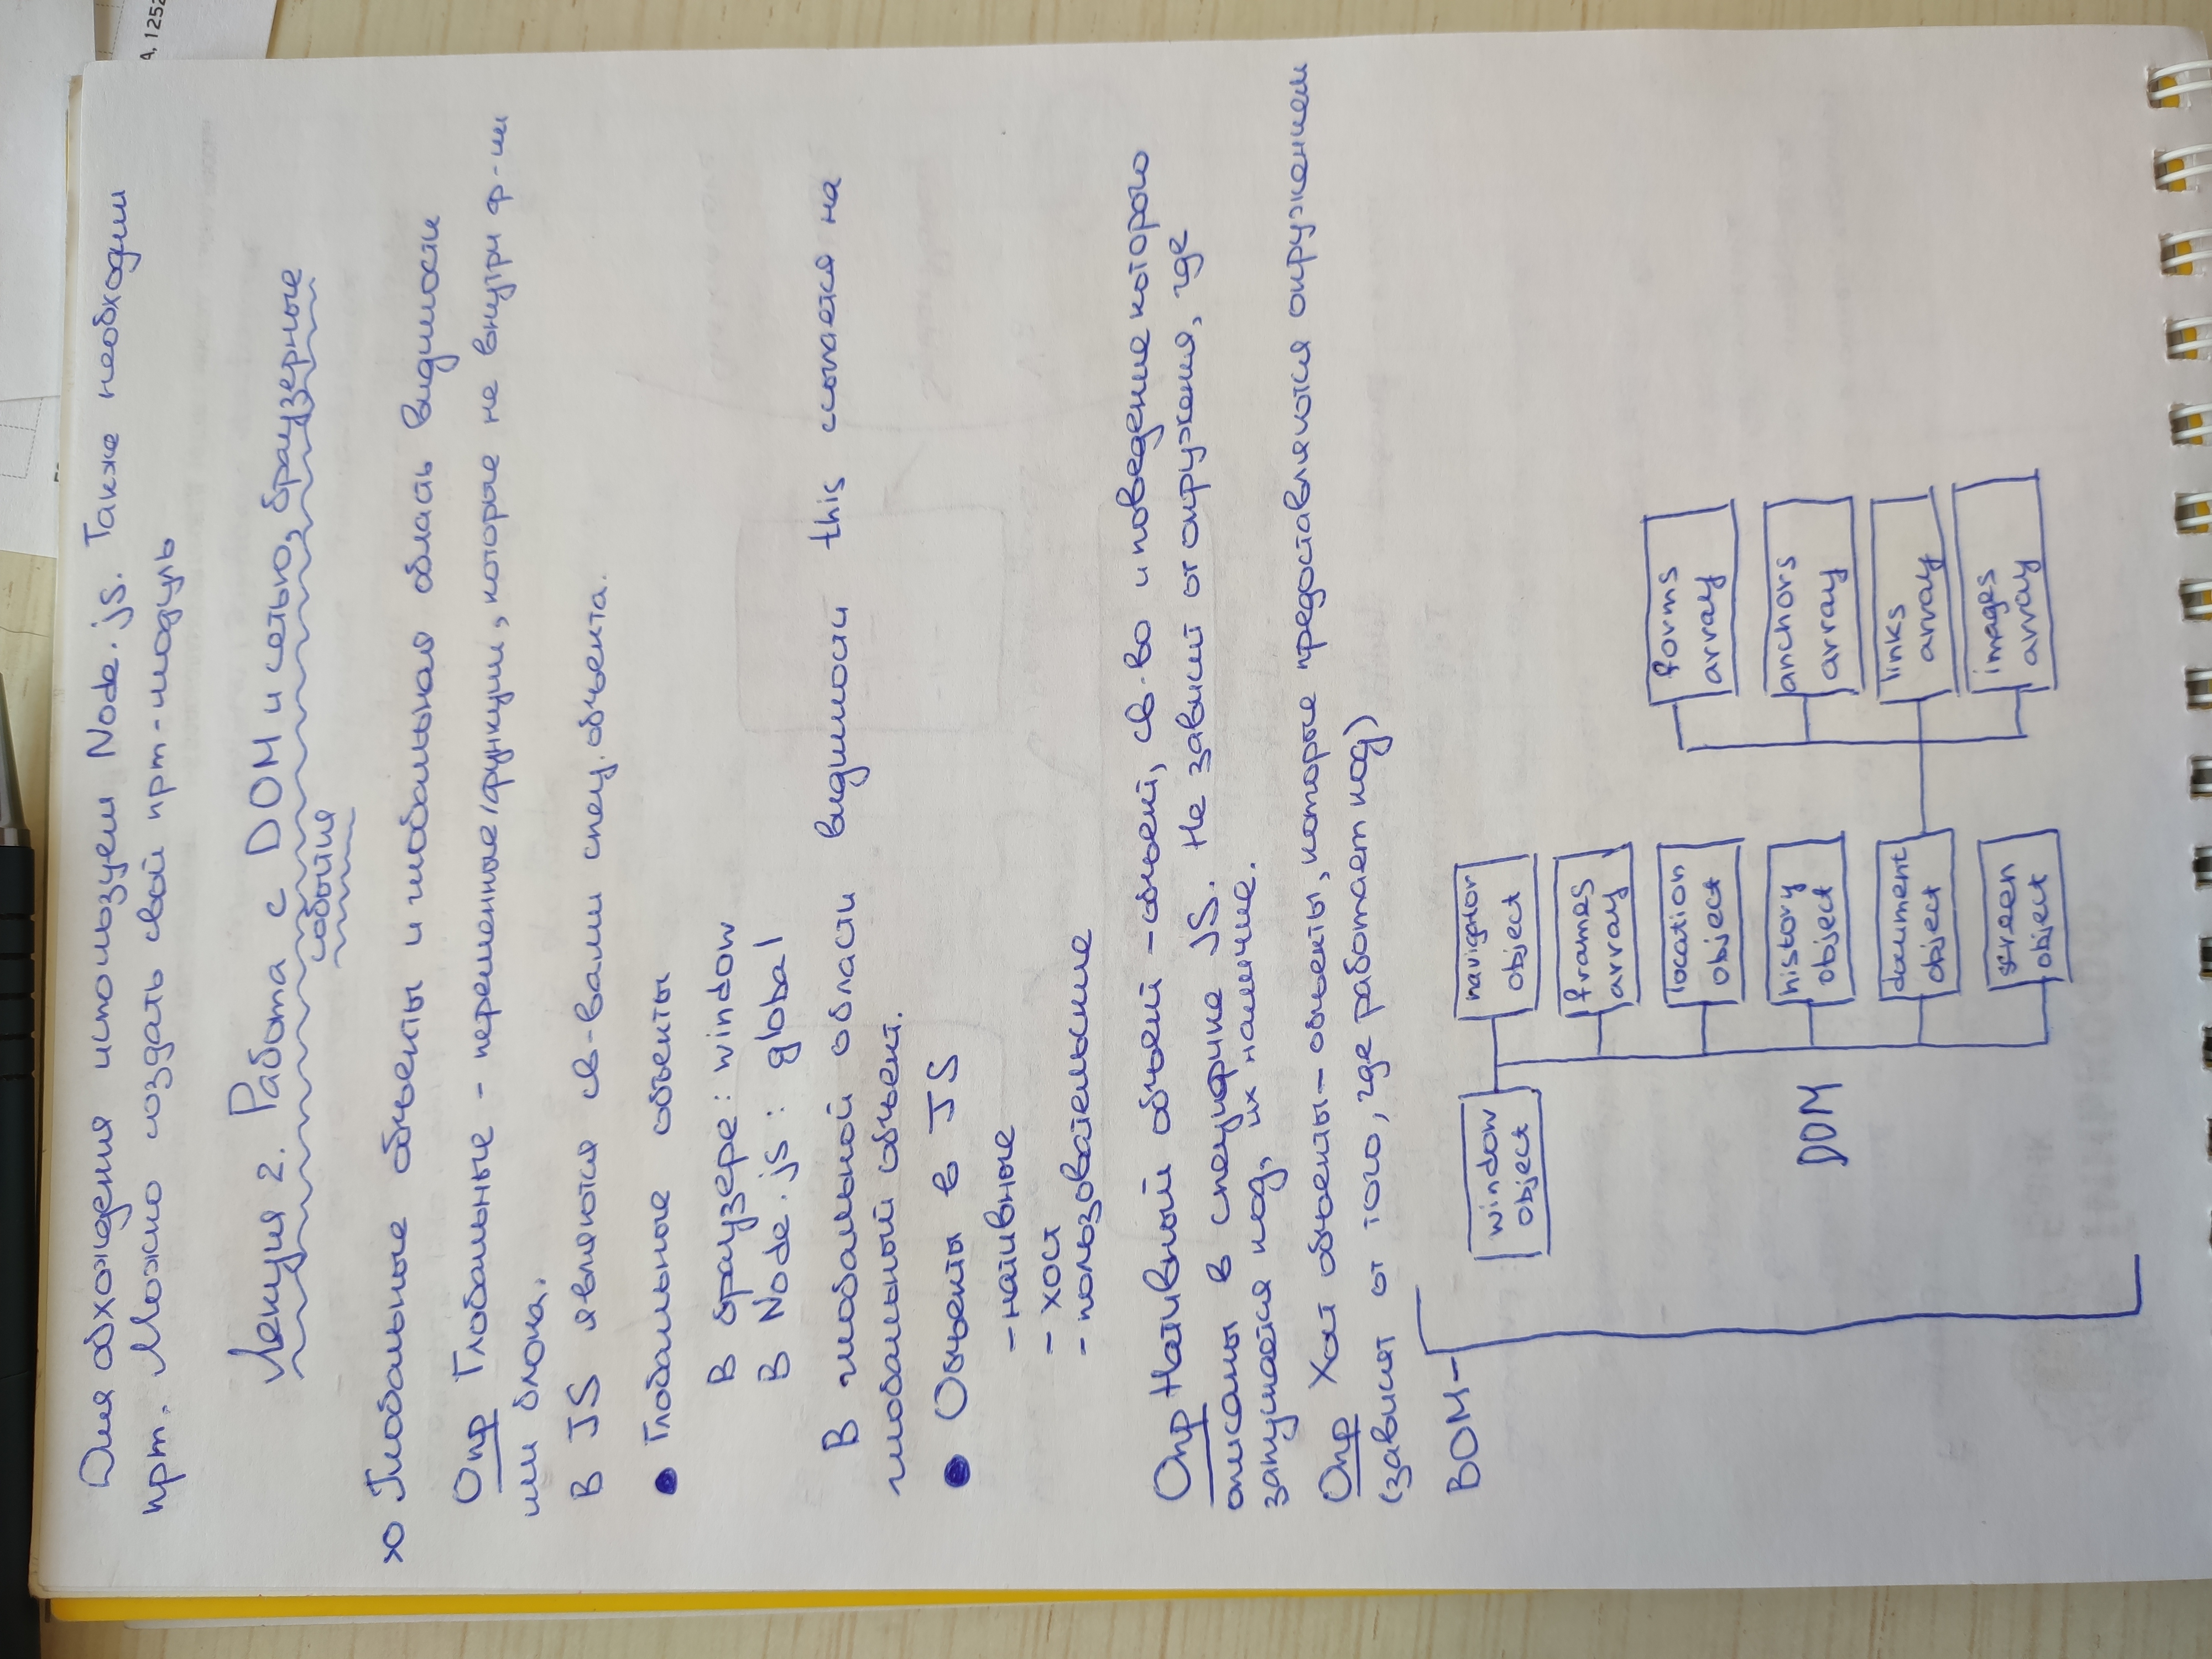 Для обхождения используем Node.js. Также необходим
npm. Можно создать свой npm-модуль
Лекция 2. Работа с DOM и сетью, браузерные
события
Глобальные объекты и глобальная область видимости
Опр Глобальные - переменные/функции, которые не внутри ф-ии
или блока.
В JS являются св-вами спец. объекта.
• Глобальные объекты
В браузере: window
В Node.js: global
В глобальной области видимости this ссылается на
глобальный объект.
• Объекты в JS
- нативные
- хост
- пользовательские
Опр Нативный объект - объект, св-во и поведение которого
описаны в специфике JS. Не зависит от окружения, где
запускается код, их наличие.
Опр Хост объекты - объекты, которые предоставляются окружением
(зависят от того, где работает код)
BOM -
window
object
navigator
object
frames
array
location
object
forms
array
history
object
anchors
array
DOM
document
object
links
array
screen
object
images
array
A, 1252